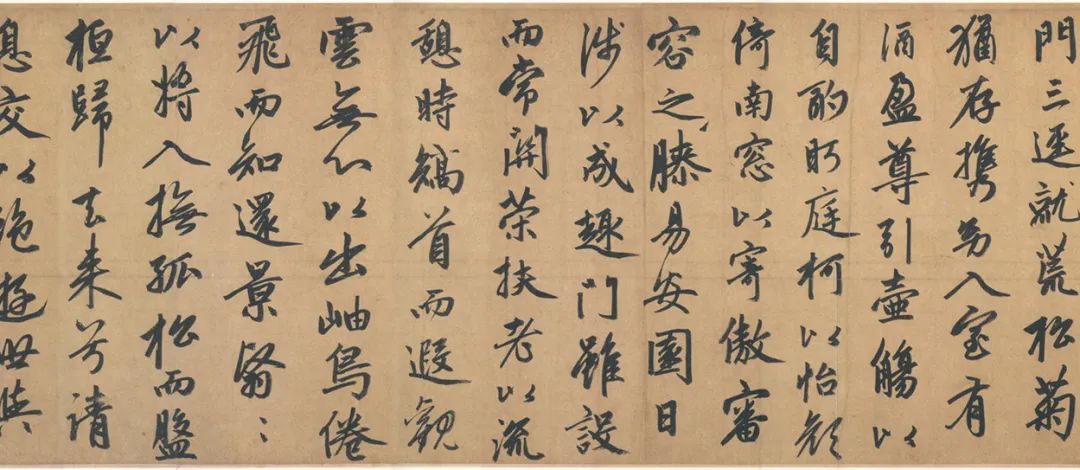 門三逕就荒松菊
猶存携幼入室有
酒盈尊引壺觴以
自酌眄庭柯以怡顔
倚南窓以寄傲審
容之膝易安園日
涉以成趣門雖設
而常關策扶老以流
憩時矯首而遐觀
雲無心以出岫鳥倦
飛而知還景翳〻
以将入撫孤松而盤
桓歸去来兮請
息交以絶遊世與